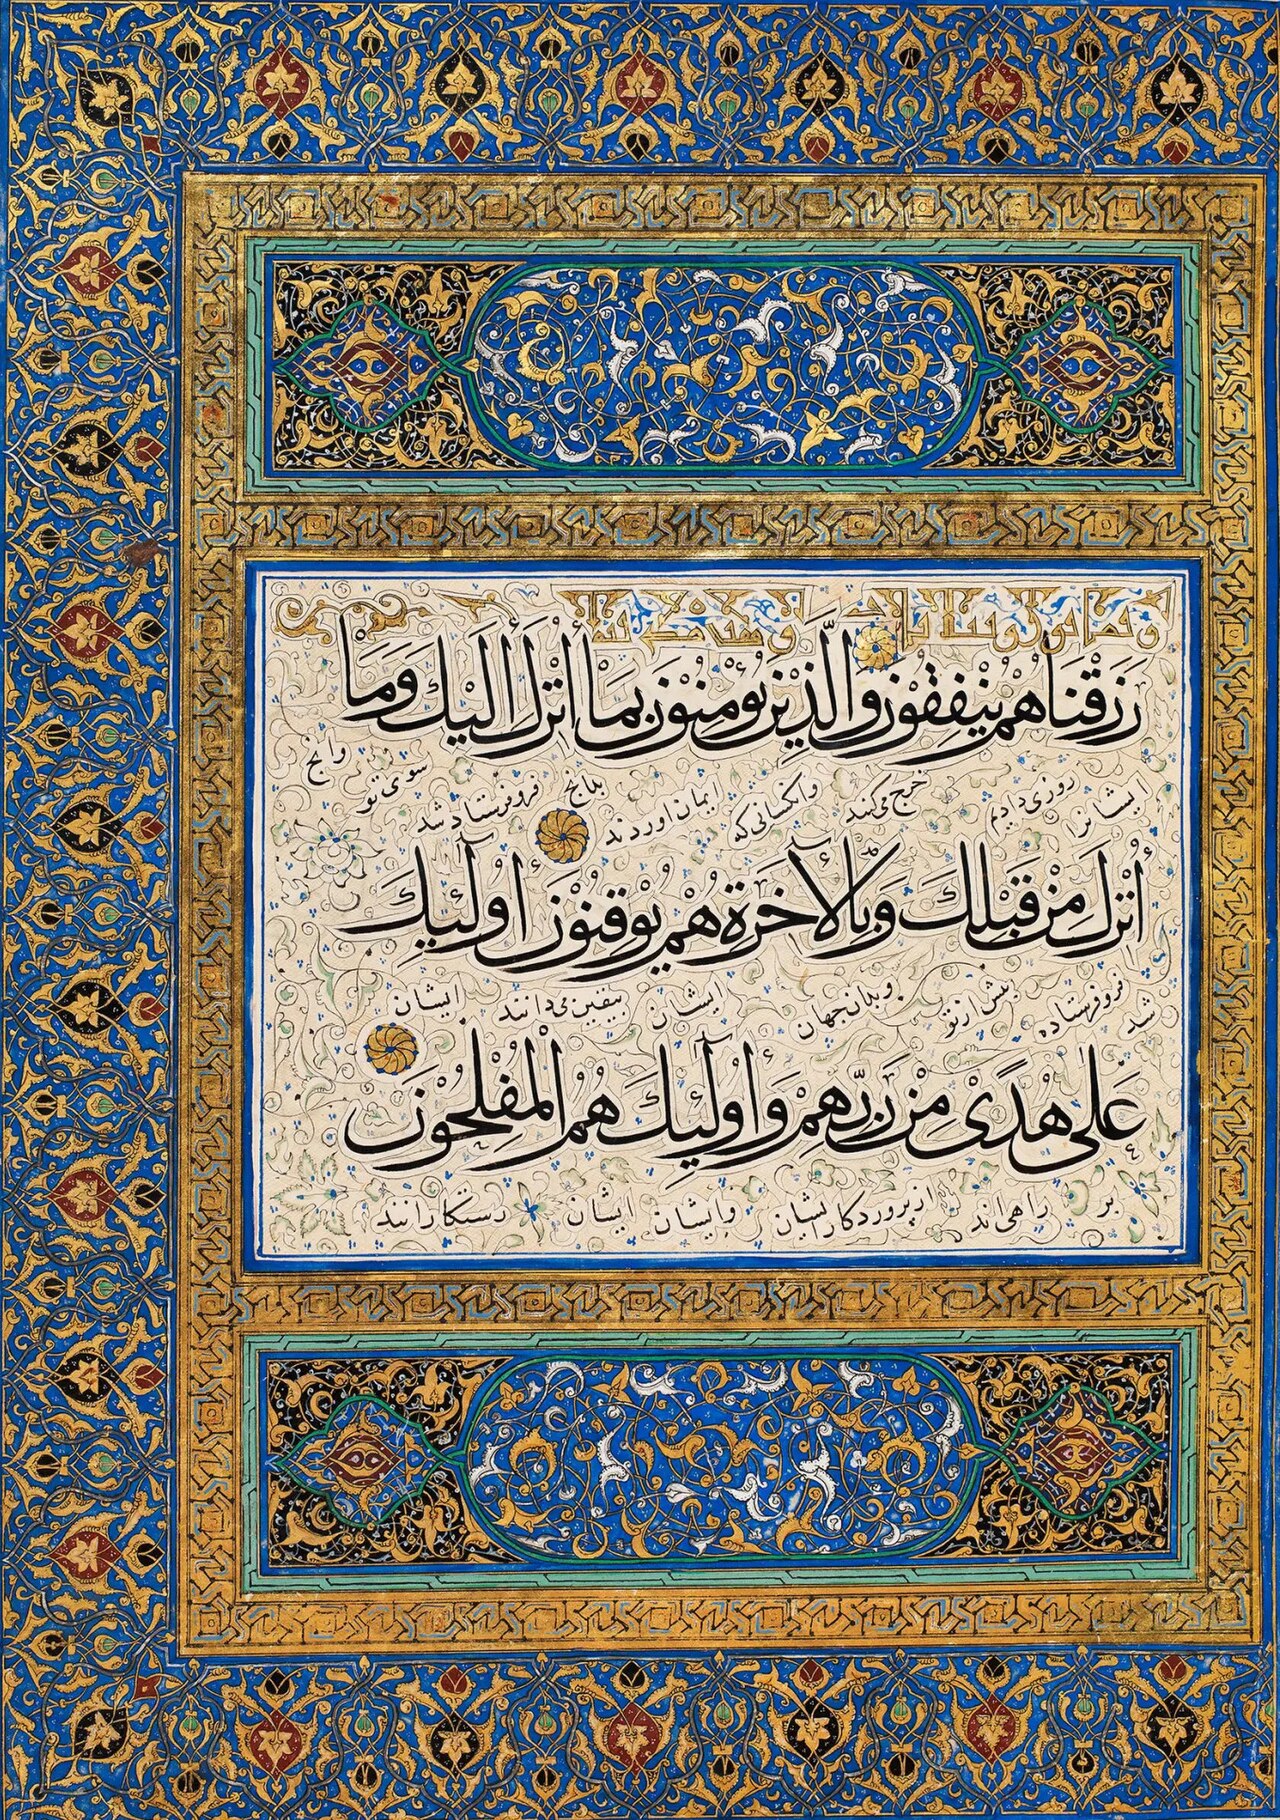 رَزَقْنَاهُمْ يُنْفِقُونَ وَالَّذِينَ يُؤْمِنُونَ بِمَا أُنْزِلَ إِلَيْكَ وَمَا
ایشانرا روزی دادیم خرج می‌کنند وآنکسانی که ایمان اوردند بدانچ فروفرستاد شد سوی تو وانچ
أُنْزِلَ مِنْ قَبْلِكَ وَبِالْآخِرَةِ هُمْ يُوقِنُونَ أُولَئِكَ
شد فروفرستاده پیش از تو وبدان جهان ایشان بیقین می‌دانند ایشان
عَلَى هُدًى مِنْ رَبِّهِمْ وَأُولَئِكَ هُمُ الْمُفْلِحُونَ
بر راهی‌اند از پروردکار ایشان وایشان ایشان رستکارانند